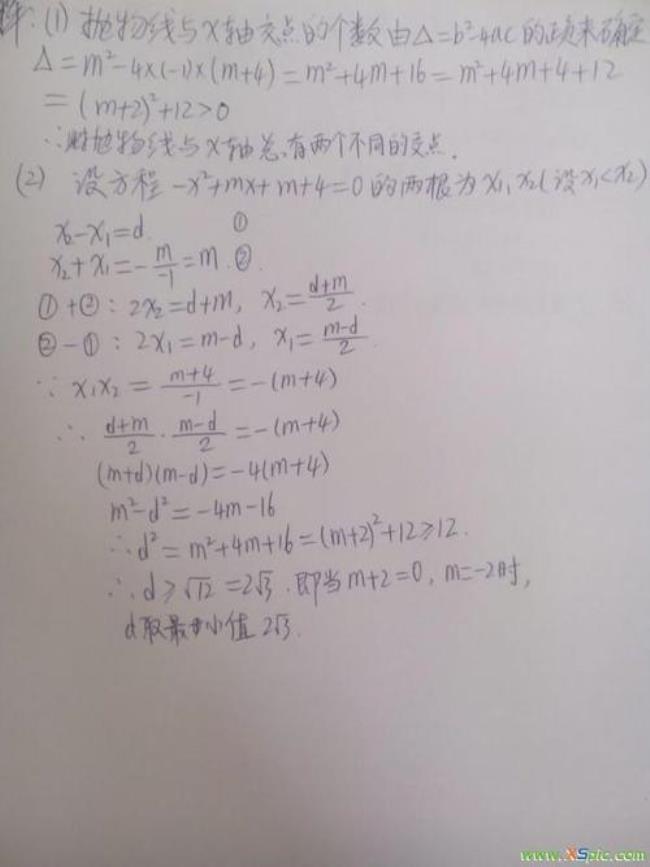 解:(1) 抛物线与x轴交点的个数由△=b²-4ac的正负来确定
△=m²-4×(-1)×(m+4)=m²+4m+16=m²+4m+4+12
=(m+2)²+12>0
∴ 抛物线与x轴总有两个不同的交点.
(2) 设方程 -x²+mx+m+4=0的两根为x₁,x₂(设x₁<x₂)
x₂-x₁=d. ①
x₂+x₁=-\frac{m}{-1}=m. ②
①+②: 2x₂=d+m, x₂=\frac{d+m}{2}.
②-①: 2x₁=m-d, x₁=\frac{m-d}{2}.
∵ x₁x₂=\frac{m+4}{-1}=-(m+4)
∴ \frac{d+m}{2}·\frac{m-d}{2}=-(m+4)
(m+d)(m-d)=-4(m+4)
m²-d²=-4m-16
∴d²=m²+4m+16=(m+2)²+12≥12.
∴d≥√12=2√3. 即当m+2=0, m=-2时,
d取最小值2√3.
www.XSpic.com